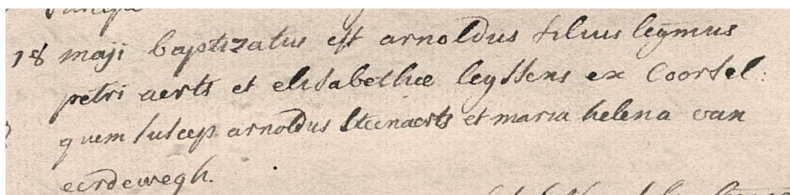 18 maji baptizatus est arnoldus filius legmus
petri aerts et elisabethæ leyssens ex Coorsel:
quem suscep arnoldus Steenaerts et maria helena van
eerdewegh.